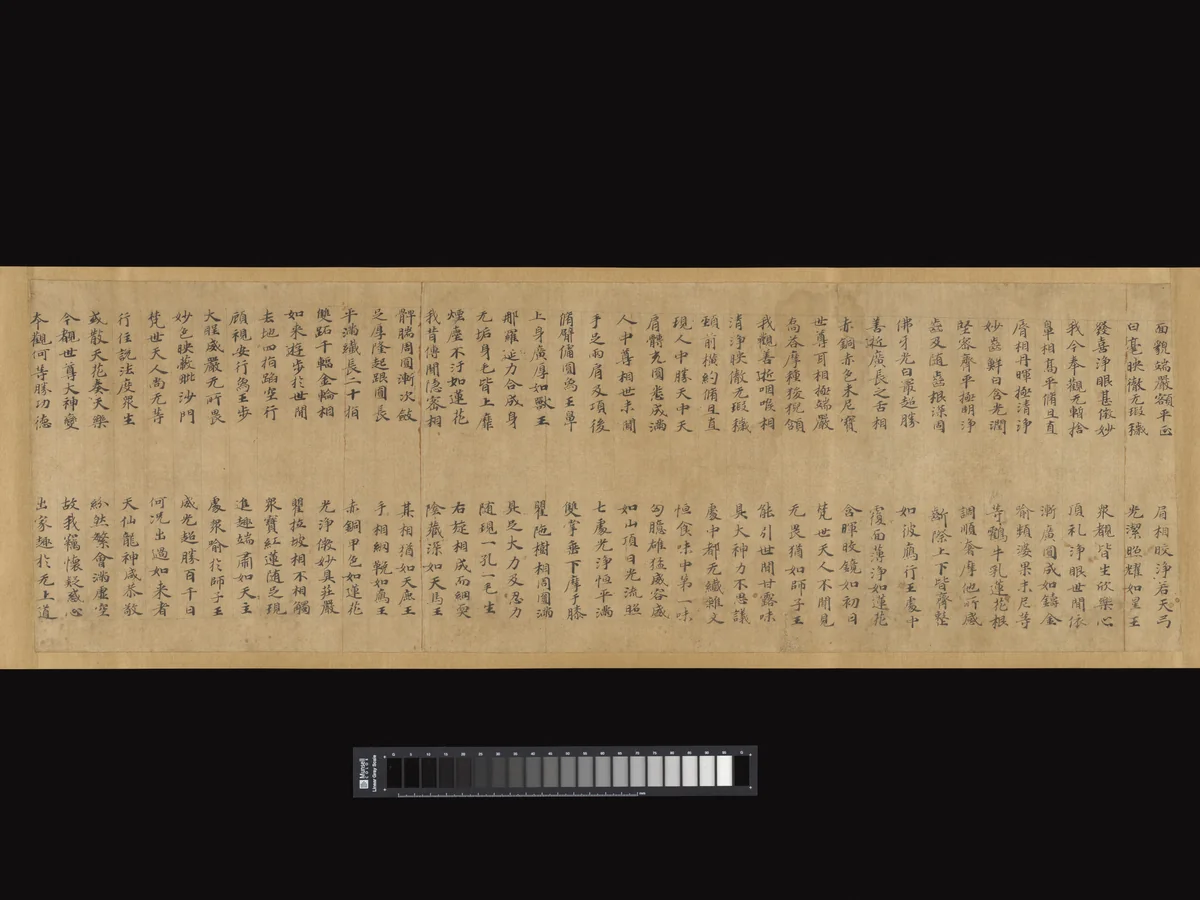 面貌端嚴額平正 眉相皎淨若天弓
白毫映徹无瑕穢 光潔照耀如星王
發喜淨眼甚微妙 衆覩皆生欣樂心
我今奉觀无暫捨 頂礼淨眼世間依
鼻相高平脩且直 漸廣圓成如鑄金
脣相丹暉極清淨 喻頻婆果末尼等
妙齒鮮白含光潤 等鶴牛乳蓮花根
堅密齊平極明淨 調順奢摩他所感
齒及随齒根深固 斷際上下皆齊整
佛牙光白最超勝 如彼鴈行王處中
善逝廣長之舌相 覆面薄淨如蓮花
赤銅赤色末尼寶 含暉皎鏡如初日
世尊耳相極端嚴 梵世天人不聞見
喬答摩種狻猊頷 无畏猶如師子王
我觀善逝咽喉相 能引世間甘露味
清淨映徹无瑕穢 具大神力不思議
頸前橫約脩且直 處中都无纖雜文
現人中勝天中天 恒食味中第一味
肩髆光圓悉成滿 匈臆雄猛威容盛
人中尊相世未聞 如山頂日光流照
手足兩肩及項後 七處光淨恒平滿
脩臂傭圓爲王鼻 雙掌垂下摩于膝
上身廣厚如獸王 瞿陁樹相周圓滿
那羅延力合成身 具足大力及忍力
无垢身毛皆上靡 随現一孔一毛生
煙塵不汙如蓮花 右旋相成而綢耎
我昔傳聞隱密相 陰藏深如天馬王
髀膞周圓漸次斂 其相猶如天鹿王
足厚隆起跟圓長 手相網鞔如鴈王
平滿纖長二十指 赤銅甲色如蓮花
雙跖千輻金輪相 光淨微妙具莊嚴
如來遊步於世間 瞿拉坡相不相觸
去地四指蹈空行 衆寶紅蓮随足現
顧視安行爲王步 進趣端肅如天主
大威嚴无所畏 處衆喻於師子王
妙色映蔽毗沙門 威光超勝百千日
梵世天人尚无等 何況出過如來者
行住說法度衆生 天仙龍神咸恭敬
或散天花奏天樂 紛然繁會滿虛空
今覩世尊大神變 故我竊懷疑惑心
本觀何等勝功德 出家趣於无上道